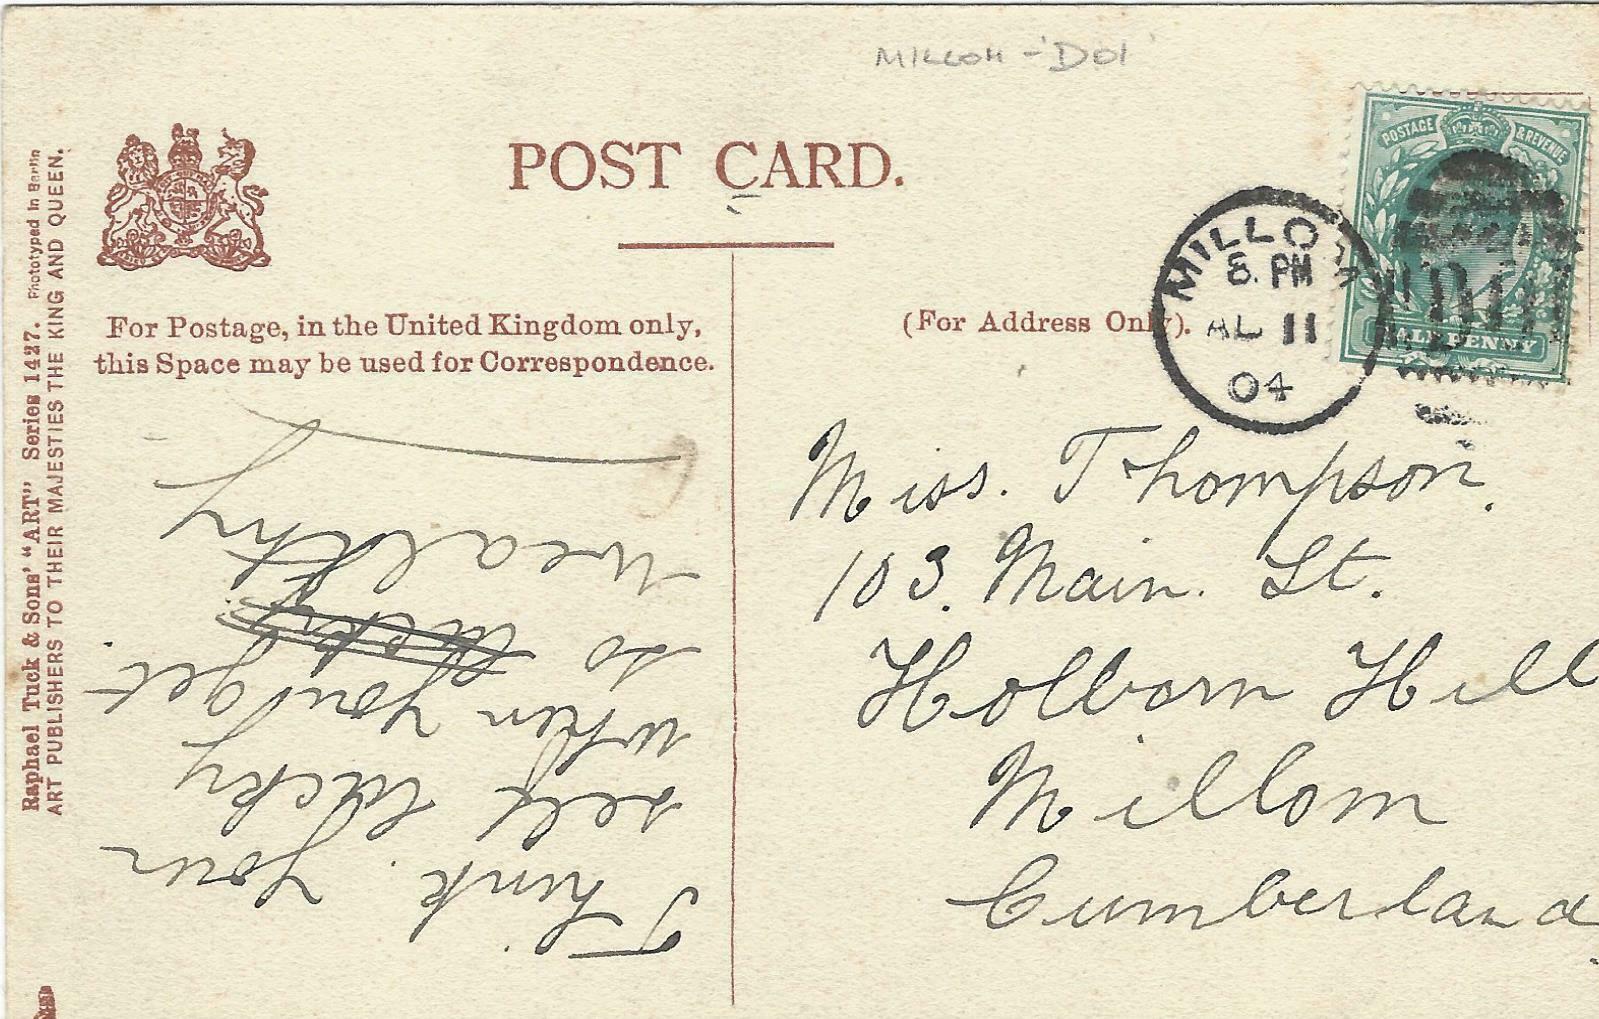 MILLOM - 'D01'
POST CARD.
For Postage, in the United Kingdom only,
this Space may be used for Correspondence.
(For Address Only).
POSTAGE & REVENUE
HALFPENNY
MILLOM
8. PM
AU 11
04
D01
Raphael Tuck & Sons' "ART" Series 1427. Phototyped in Berlin
ART PUBLISHERS TO THEIR MAJESTIES THE KING AND QUEEN.
Think your
self lucky
when you get
so lucky
wealthy
Miss. Thompson.
103. Main. St.
Holborn Hill
Millom
Cumberland.